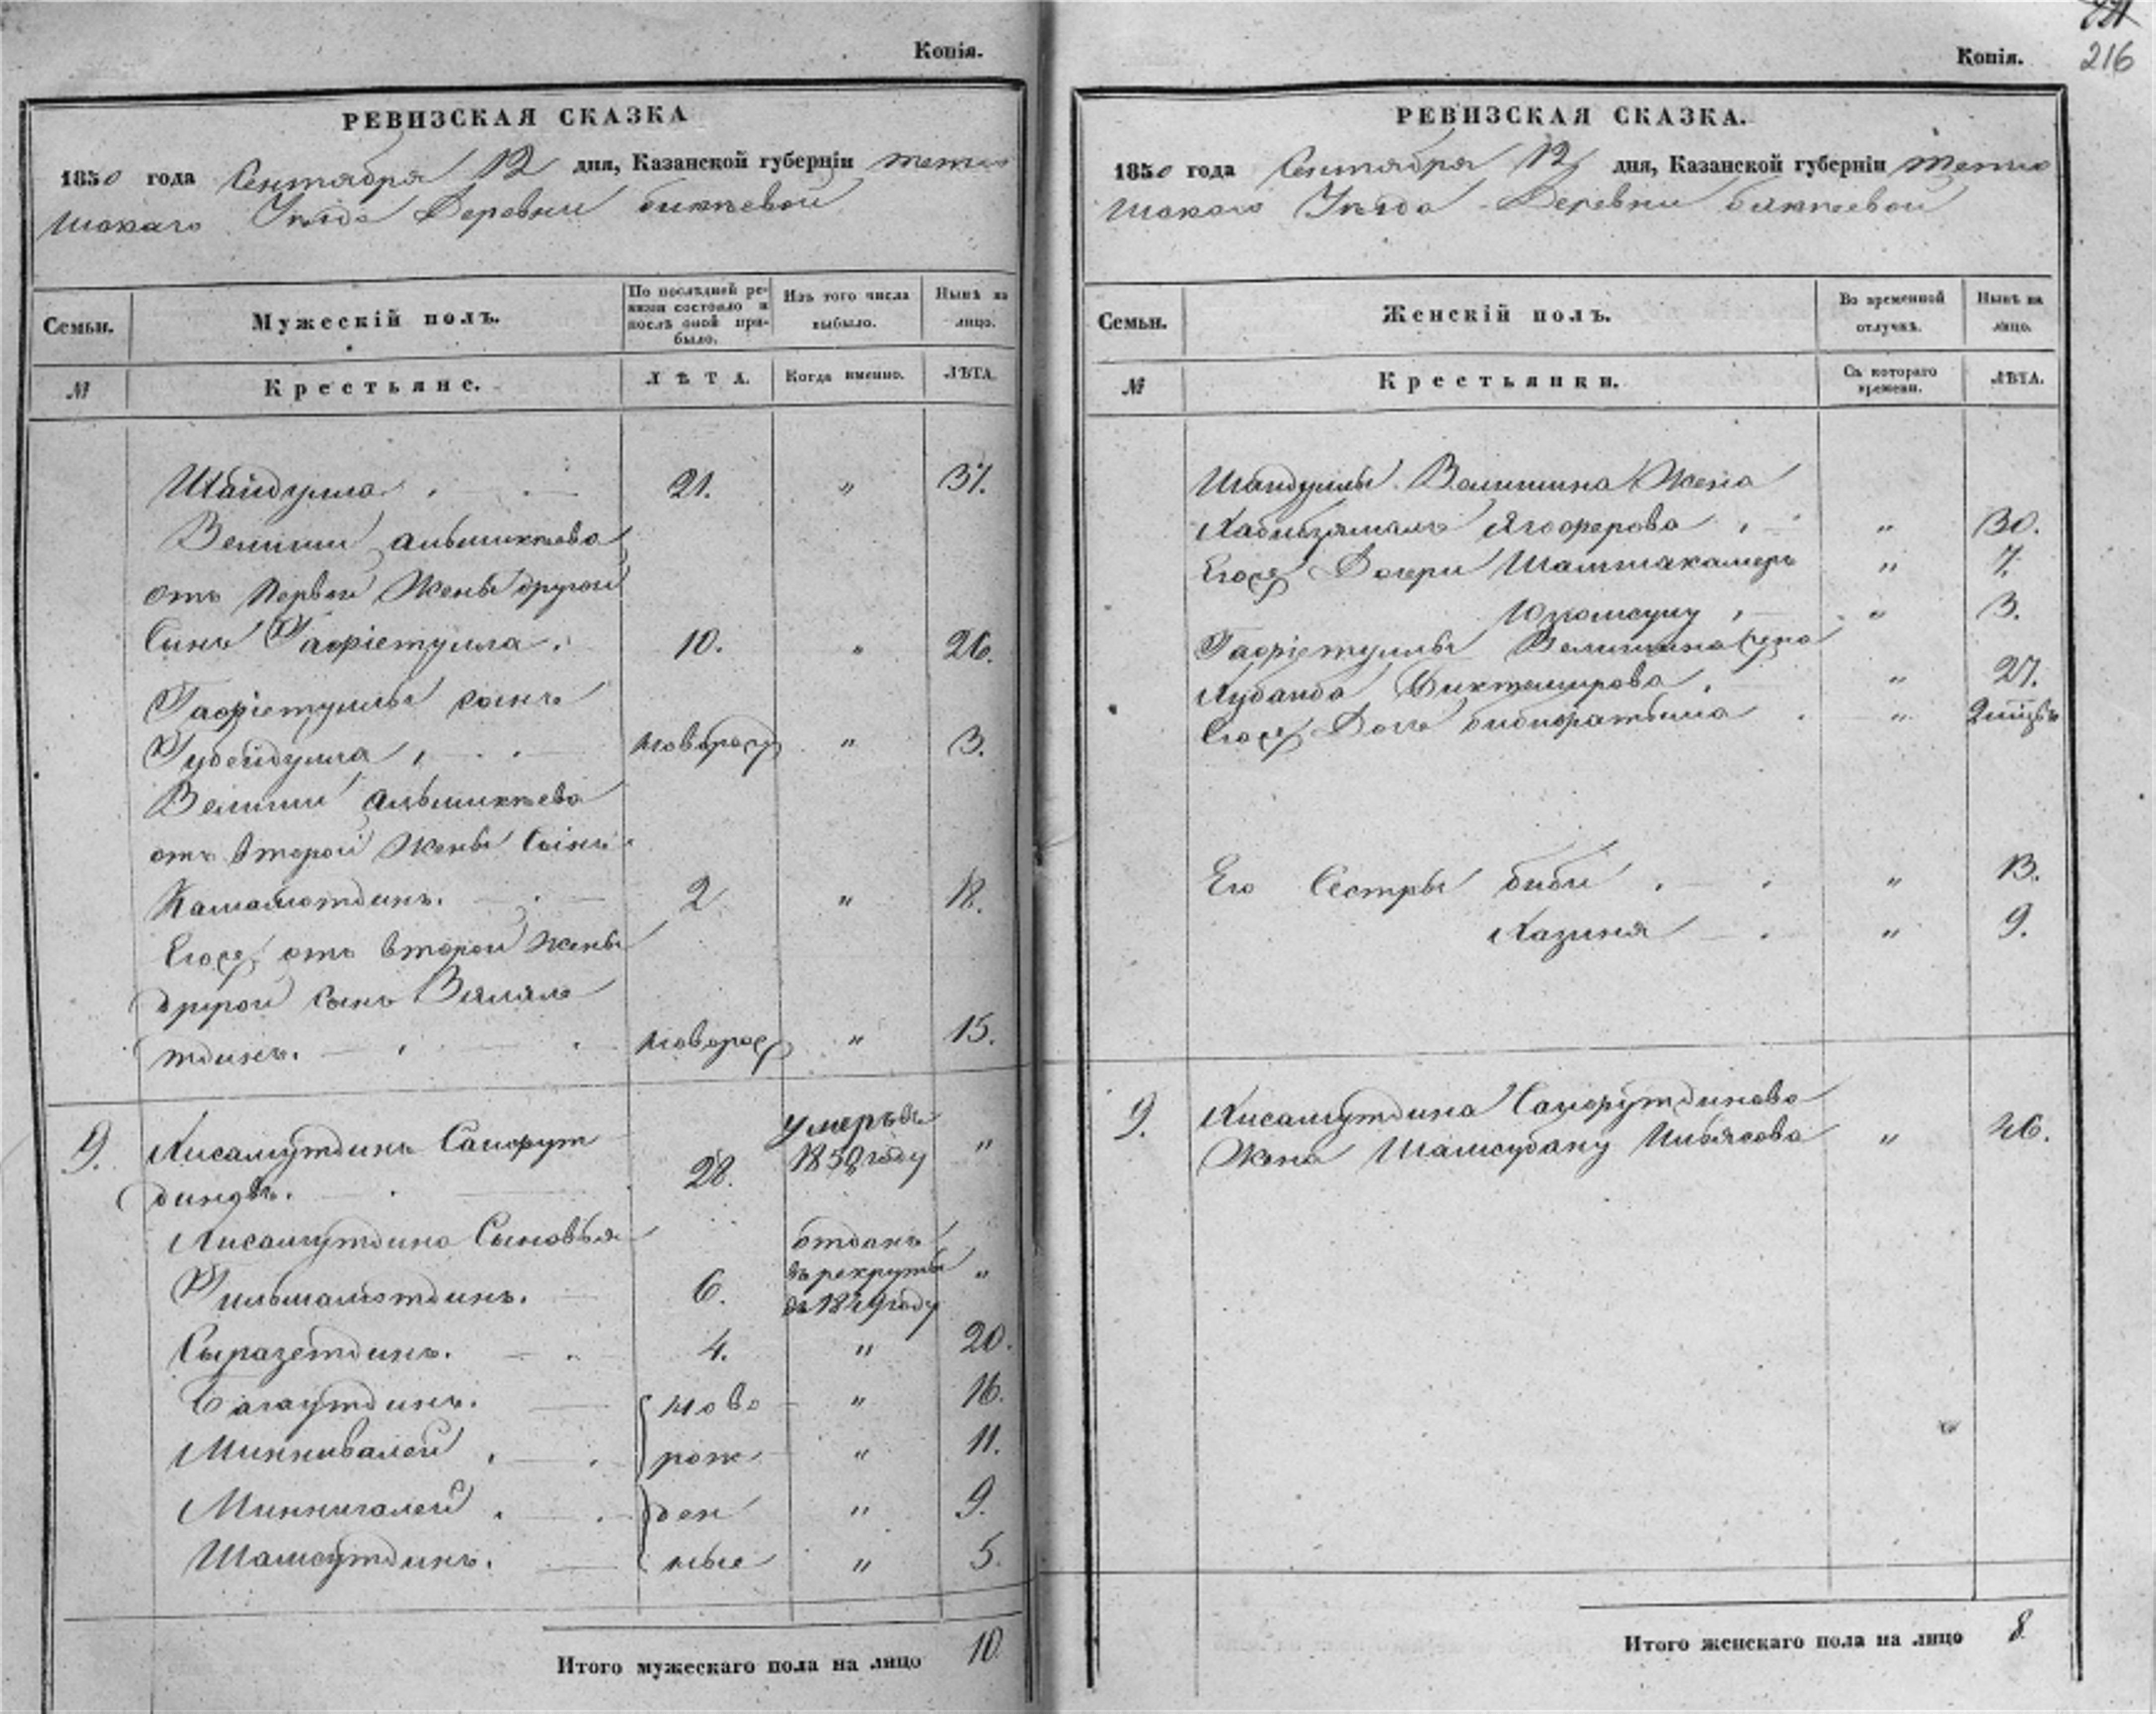 Копія.
РЕВИЗСКАЯ СКАЗКА
1850 года Сентября 12 дня, Казанской губерніи Тетю
шскаго Уѣзда Деревни Бикѣевой
Семьи. Мужескій полъ. По послѣдней ревизіи состояло и послѣ оной прибыло. Изъ того числа выбыло. Нынѣ на лицо.
№ Крестьяне. ЛѢТА. Когда именно. ЛѢТА.
Шайдулла 21. " 37.
Велиши
отъ Первой Жены другой
Сынъ 10. " 26.
сынъ
Губейдулла новорож " 3.
Велиши
отъ второй Жены Сынъ
Камалютдинъ. 2 " 18.
Егоже отъ второй Жены
другой сынъ Вялял
тдинъ. новорож " 15.
9. Хисамутдинъ
диновъ. 28. умеръ въ 1850 году "
Хисамутдина Сыновья
Гильмалютдинъ. 6. отданъ въ рекруты въ 1849 году "
Сыразетдинъ. 4. " 20.
Багаутдинъ. ново " 16.
Миннивалей рож " 11.
Миннигалей ден " 9.
Шамсутдинъ. ные " 5.
Итого мужескаго пола на лицо 10.
Копія.
216
РЕВИЗСКАЯ СКАЗКА.
1850 года Сентября 12 дня, Казанской губерніи Тетю
шскаго Уѣзда Деревни Бикѣевой
Семьи. Женскій полъ. Во временной отлучкѣ. Нынѣ на лицо.
№ Крестьянки. Съ котораго времени. ЛѢТА.
Шайдуллы Велишина Жена
Хабибзямалъ Ягоферова " 30.
Егоже Дочери Шамшикамеръ " 7.
" 3.
Велишина Жена
Биктемирова " 27.
Егоже Дочь " 2 міцвъ
Его Сестры Биби " 13.
Хазиня " 9.
9. Хисамутдина
Жена Шамсубану Ильясова " 46.
Итого женскаго пола на лицо 8